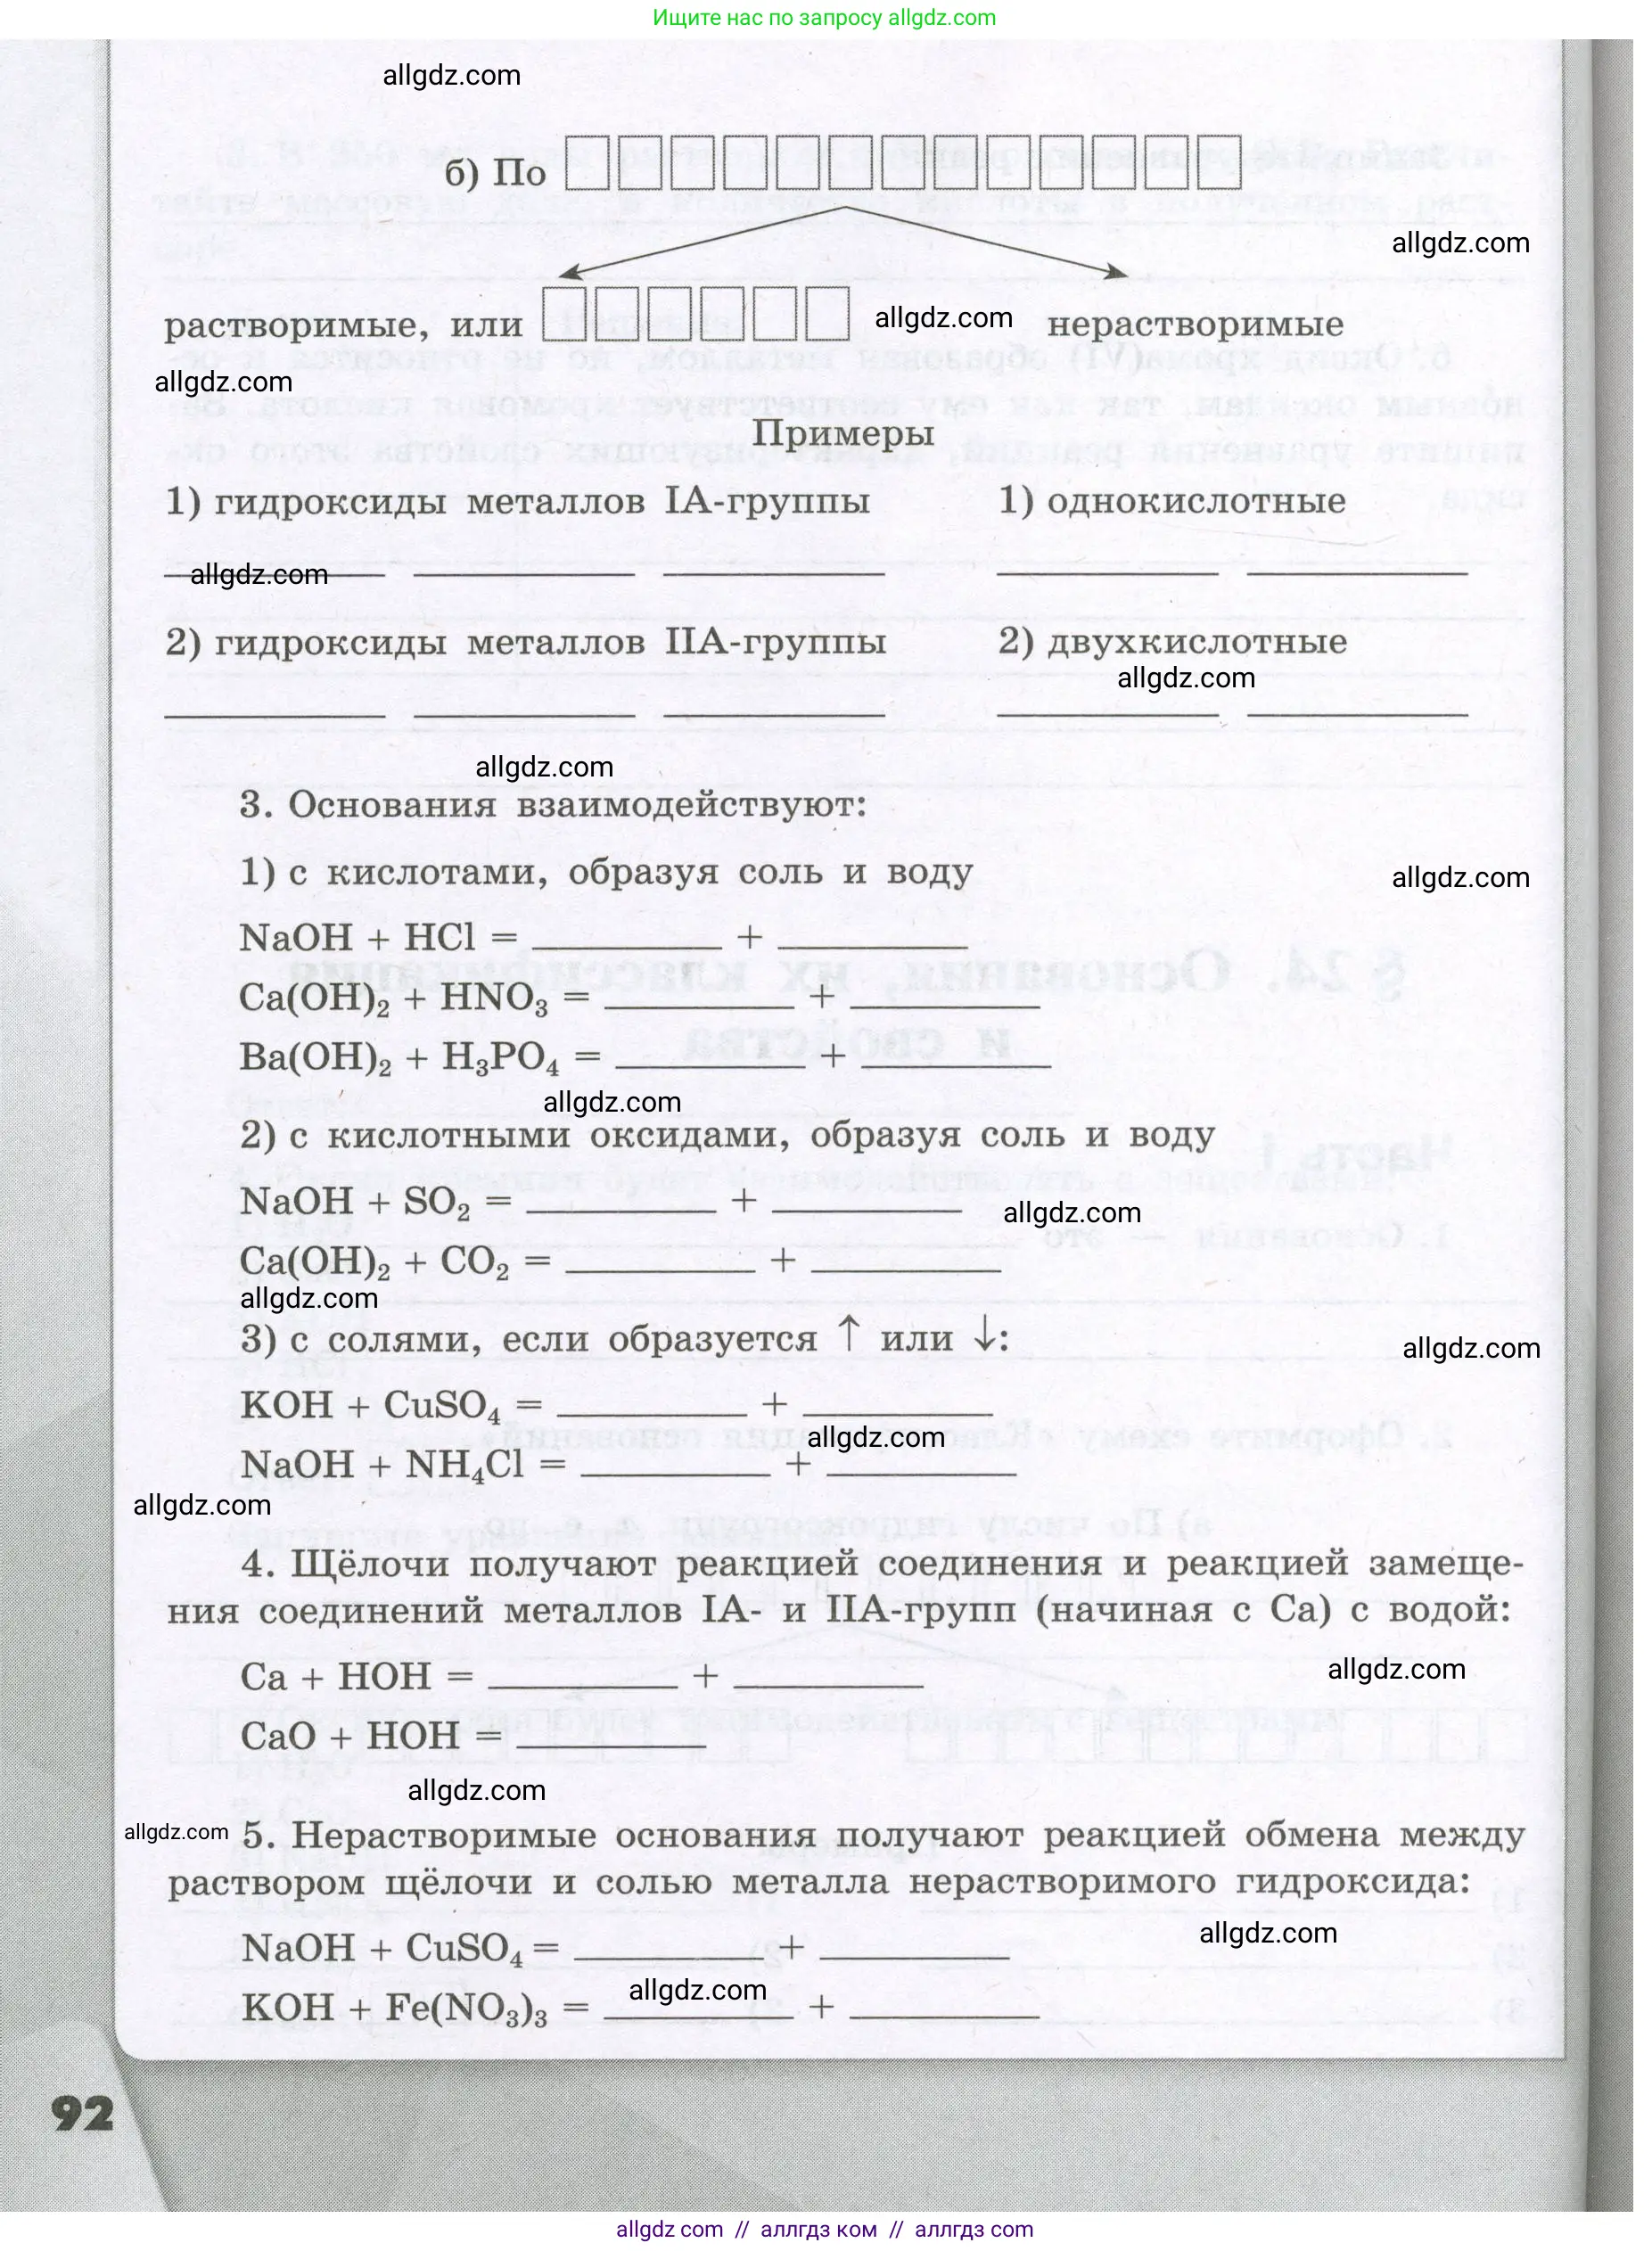 Ищите нас по запросу allgdz.com
allgdz.com
б) По
allgdz.com
растворимые, или
allgdz.com
нерастворимые
allgdz.com
Примеры
1) гидроксиды металлов IА-группы
1) однокислотные
allgdz.com
2) гидроксиды металлов IIА-группы
2) двухкислотные
allgdz.com
allgdz.com
3. Основания взаимодействуют:
1) с кислотами, образуя соль и воду
allgdz.com
NaOH + HCl = ________ + ________
Ca(OH)₂ + HNO₃ = ________ + ________
Ba(OH)₂ + H₃PO₄ = ________ + ________
allgdz.com
2) с кислотными оксидами, образуя соль и воду
NaOH + SO₂ = ________ + ________
allgdz.com
Ca(OH)₂ + CO₂ = ________ + ________
allgdz.com
3) с солями, если образуется ↑ или ↓:
allgdz.com
KOH + CuSO₄ = ________ + ________
allgdz.com
NaOH + NH₄Cl = ________ + ________
allgdz.com
4. Щёлочи получают реакцией соединения и реакцией замеще-
ния соединений металлов IА- и IIА-групп (начиная с Ca) с водой:
Ca + HOH = ________ + ________
allgdz.com
CaO + HOH = ________
allgdz.com
allgdz.com
5. Нерастворимые основания получают реакцией обмена между
раствором щёлочи и солью металла нерастворимого гидроксида:
allgdz.com
NaOH + CuSO₄ = ________ + ________
allgdz.com
KOH + Fe(NO₃)₃ = ________ + ________
92
allgdz com // аллгдз ком // аллгдз com